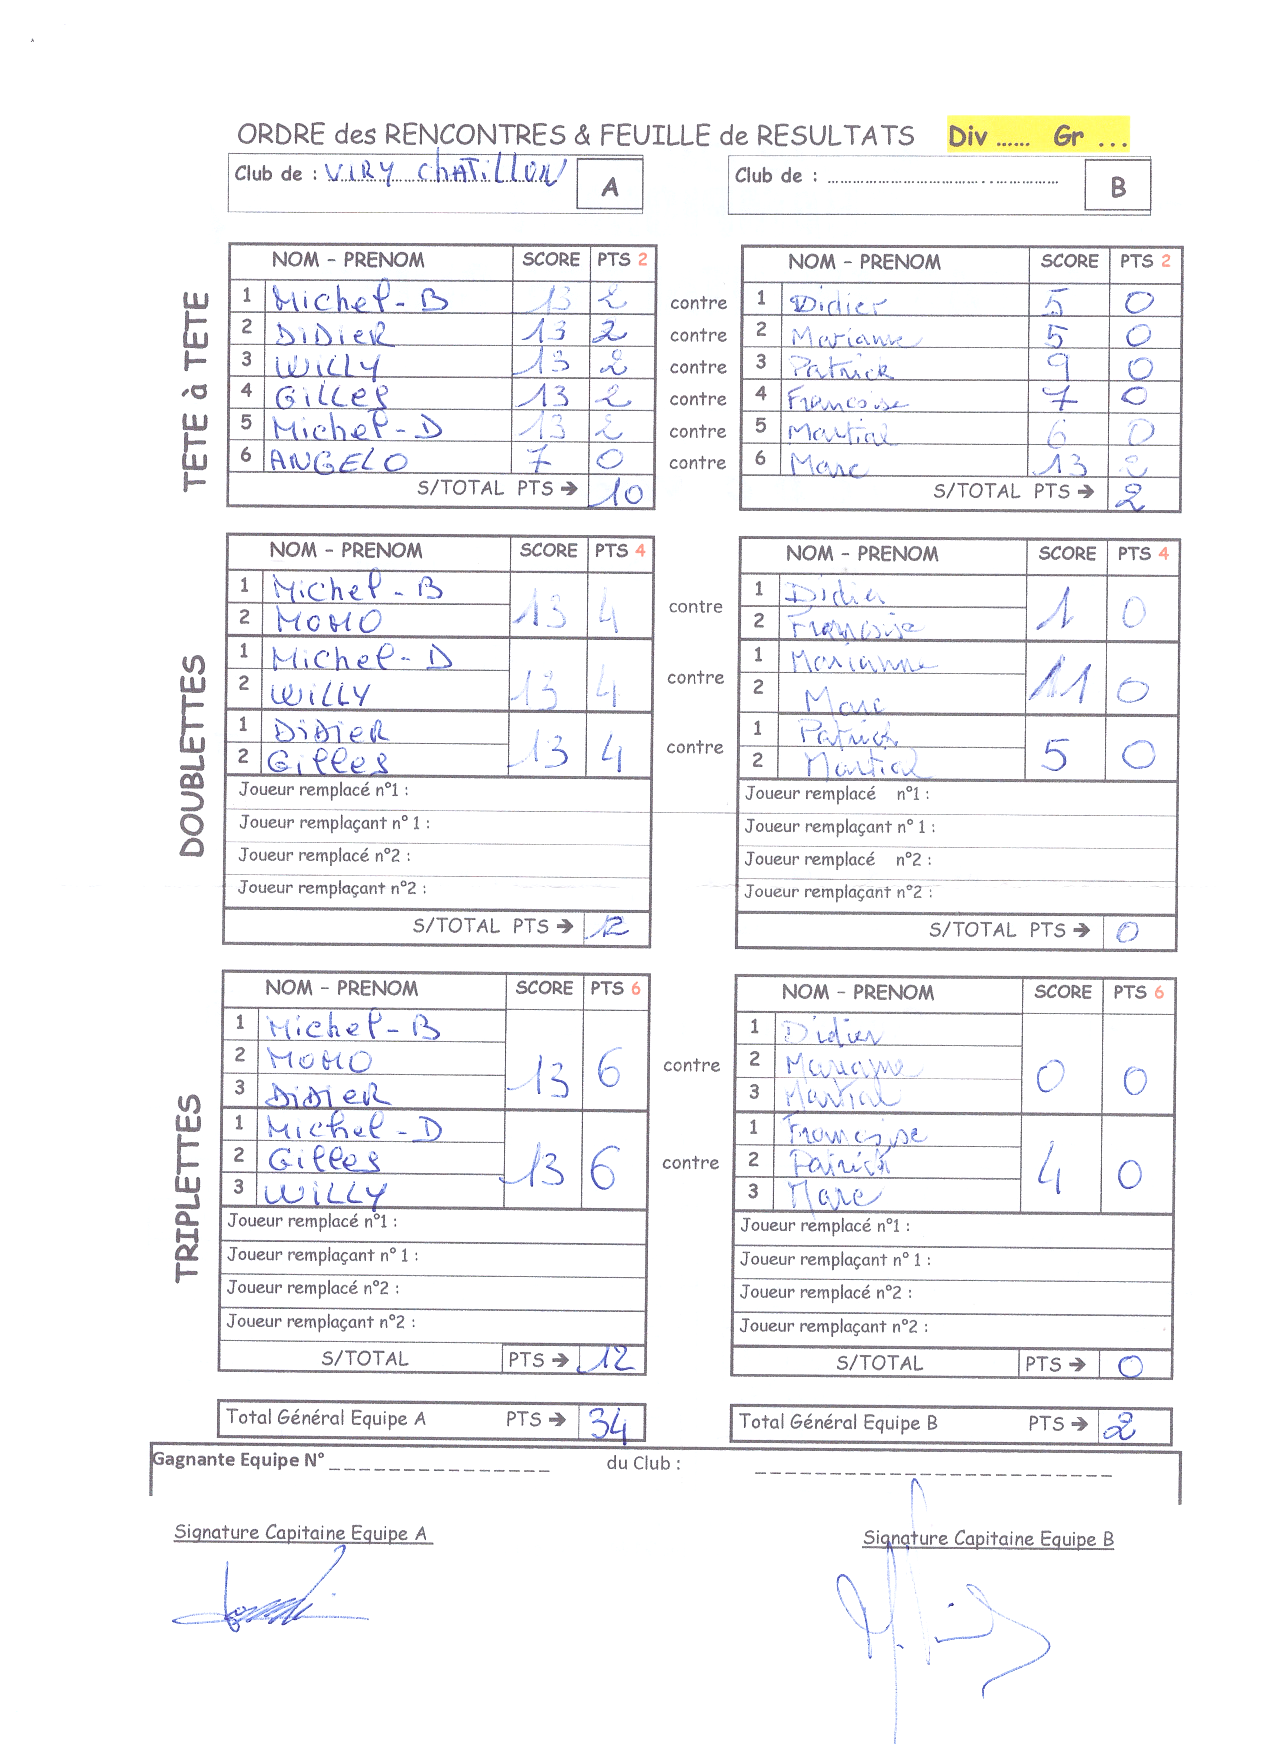 ORDRE des RENCONTRES & FEUILLE de RESULTATS Div ...... Gr ...
Club de : VIRY ChATiLLON A Club de : ..................................... B
NOM - PRENOM SCORE PTS 2 NOM - PRENOM SCORE PTS 2
TETE à TETE
1 Michel-B 13 2 contre 1 Didier 5 0
2 DiDiER 13 2 contre 2 Marianne 5 0
3 WiLLY 13 2 contre 3 Patrick 9 0
4 GiLLES 13 2 contre 4 Francoise 7 0
5 Michel-D 13 2 contre 5 Martial 6 0
6 ANGELO 7 0 contre 6 Marc 13 2
S/TOTAL PTS → 10 S/TOTAL PTS → 2
DOUBLETTES
NOM - PRENOM SCORE PTS 4 NOM - PRENOM SCORE PTS 4
1 Michel-B 13 4 contre 1 Didier 1 0
2 MOMO 2 Françoise
1 Michel-D 13 4 contre 1 Marianne 11 0
2 WiLLY 2 Marc
1 DiDiER 13 4 contre 1 Patrick 5 0
2 Gilles 2 Martial
Joueur remplacé n°1 : Joueur remplacé n°1 :
Joueur remplaçant n° 1 : Joueur remplaçant n° 1 :
Joueur remplacé n°2 : Joueur remplacé n°2 :
Joueur remplaçant n°2 : Joueur remplaçant n°2 :
S/TOTAL PTS → 12 S/TOTAL PTS → 0
TRIPLETTES
NOM - PRENOM SCORE PTS 6 NOM - PRENOM SCORE PTS 6
1 Michel-B 1 Didier
2 MOMO 13 6 contre 2 Marianne 0 0
3 DiDiER 3 Martial
1 Michel-D 1 Françoise
2 Gilles 13 6 contre 2 Patrick 4 0
3 WiLLY 3 Marc
Joueur remplacé n°1 : Joueur remplacé n°1 :
Joueur remplaçant n° 1 : Joueur remplaçant n° 1 :
Joueur remplacé n°2 : Joueur remplacé n°2 :
Joueur remplaçant n°2 : Joueur remplaçant n°2 :
S/TOTAL PTS → 12 S/TOTAL PTS → 0
Total Général Equipe A PTS → 34 Total Général Equipe B PTS → 2
Gagnante Equipe N° _______________ du Club : _________________________
Signature Capitaine Equipe A Signature Capitaine Equipe B